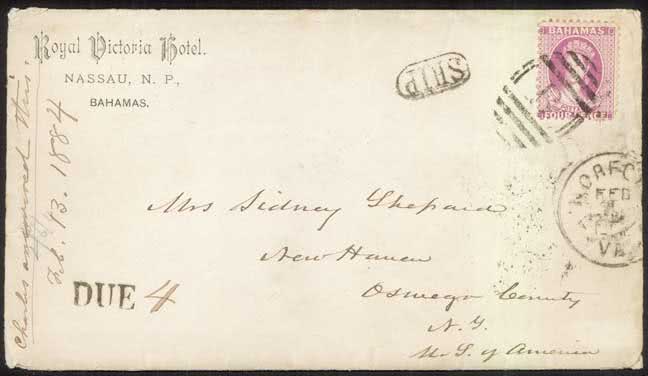 Royal Victoria Hotel.
NASSAU, N. P.,
BAHAMAS.
SHIP
BAHAMAS
FOUR PENCE
NORFO
FEB
VA
Charles answered this.
Feb. 13. 1884
Mrs Sidney Shepard
New Haven
Oswego County
N. Y.
U. S. of America
DUE 4